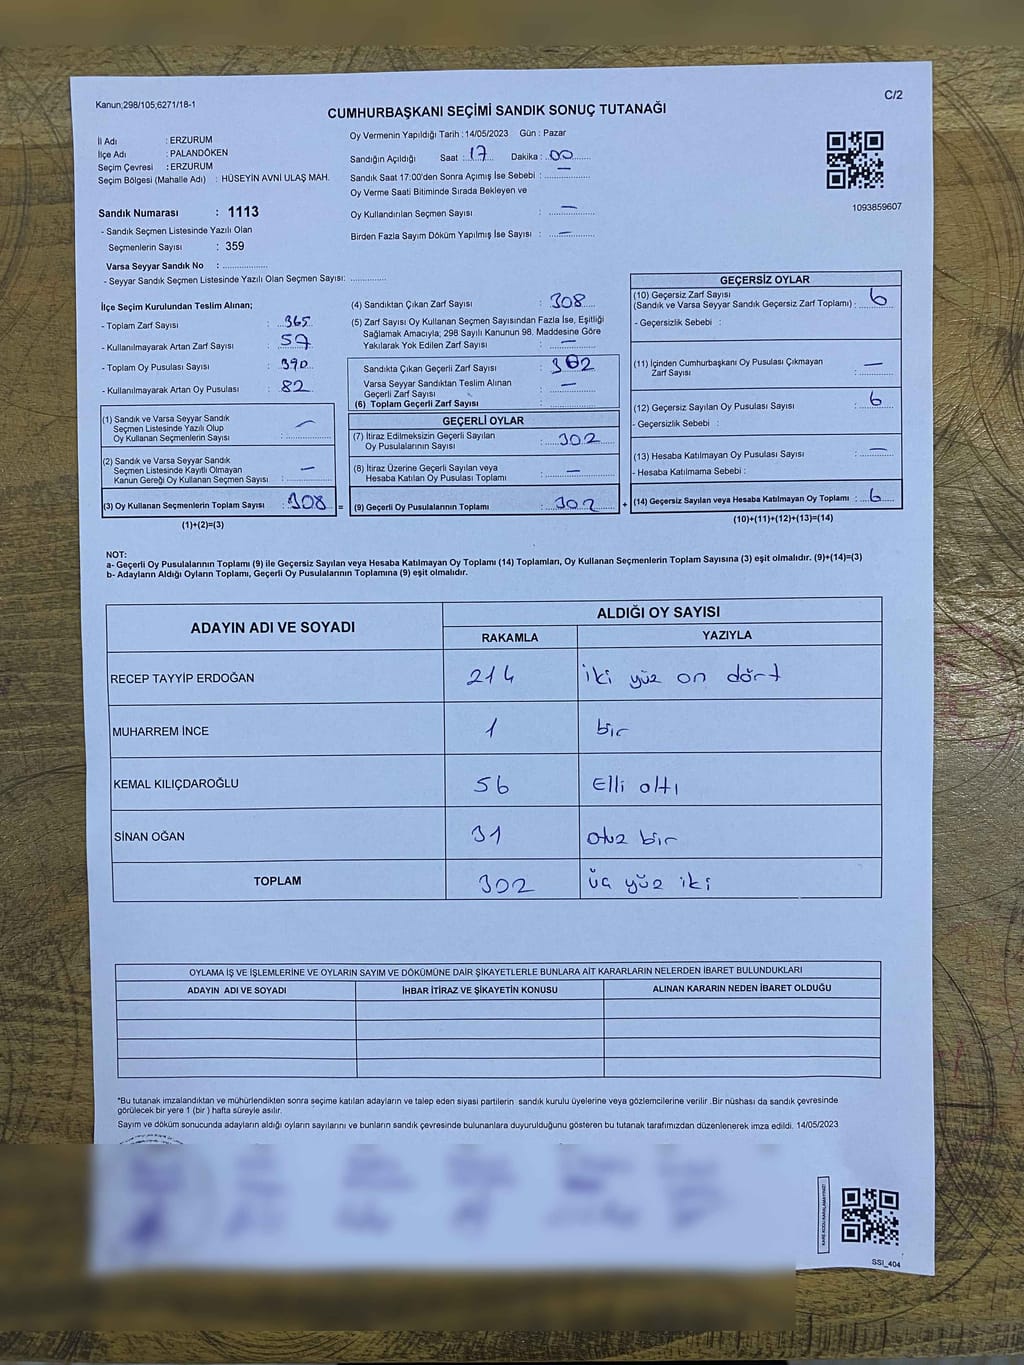 Kanun;298/105;6271/18-1
C/2
CUMHURBAŞKANI SEÇİMİ SANDIK SONUÇ TUTANAĞI
İl Adı : ERZURUM
İlçe Adı : PALANDÖKEN
Seçim Çevresi : ERZURUM
Seçim Bölgesi (Mahalle Adı) : HÜSEYİN AVNİ ULAŞ MAH.
Sandık Numarası : 1113
- Sandık Seçmen Listesinde Yazılı Olan
Seçmenlerin Sayısı : 359
Varsa Seyyar Sandık No : ..................
- Seyyar Sandık Seçmen Listesinde Yazılı Olan Seçmen Sayısı: .............
Oy Vermenin Yapıldığı Tarih : 14/05/2023 Gün : Pazar
Sandığın Açıldığı Saat : 17 Dakika : 00
Sandık Saat 17:00'den Sonra Açımış İse Sebebi : —
Oy Verme Saati Bitiminde Sırada Bekleyen ve
Oy Kullandırılan Seçmen Sayısı : —
Birden Fazla Sayım Döküm Yapılmış İse Sayısı : —
1093859607
İlçe Seçim Kurulundan Teslim Alınan;
- Toplam Zarf Sayısı : 365
- Kullanılmayarak Artan Zarf Sayısı : 57
- Toplam Oy Pusulası Sayısı : 390
- Kullanılmayarak Artan Oy Pusulası : 82
(1) Sandık ve Varsa Seyyar Sandık
Seçmen Listesinde Yazılı Olup
Oy Kullanan Seçmenlerin Sayısı : —
(2) Sandık ve Varsa Seyyar Sandık
Seçmen Listesinde Kayıtlı Olmayan
Kanun Gereği Oy Kullanan Seçmen Sayısı : —
(3) Oy Kullanan Seçmenlerin Toplam Sayısı : 308
(1)+(2)=(3)
(4) Sandıktan Çıkan Zarf Sayısı : 308
(5) Zarf Sayısı Oy Kullanan Seçmen Sayısından Fazla İse, Eşitliği
Sağlamak Amacıyla; 298 Sayılı Kanunun 98. Maddesine Göre
Yakılarak Yok Edilen Zarf Sayısı : —
Sandıkta Çıkan Geçerli Zarf Sayısı : 302
Varsa Seyyar Sandıktan Teslim Alınan
Geçerli Zarf Sayısı : —
(6) Toplam Geçerli Zarf Sayısı
GEÇERLİ OYLAR
(7) İtiraz Edilmeksizin Geçerli Sayılan
Oy Pusulalarının Sayısı : 302
(8) İtiraz Üzerine Geçerli Sayılan veya
Hesaba Katılan Oy Pusulası Toplamı : —
= (9) Geçerli Oy Pusulalarının Toplamı : 302 +
GEÇERSİZ OYLAR
(10) Geçersiz Zarf Sayısı
(Sandık ve Varsa Seyyar Sandık Geçersiz Zarf Toplamı) : 6
- Geçersizlik Sebebi :
(11) İçinden Cumhurbaşkanı Oy Pusulası Çıkmayan
Zarf Sayısı : —
(12) Geçersiz Sayılan Oy Pusulası Sayısı : 6
- Geçersizlik Sebebi :
(13) Hesaba Katılmayan Oy Pusulası Sayısı : —
- Hesaba Katılmama Sebebi :
(14) Geçersiz Sayılan veya Hesaba Katılmayan Oy Toplamı : 6
(10)+(11)+(12)+(13)=(14)
NOT:
a- Geçerli Oy Pusulalarının Toplamı (9) ile Geçersiz Sayılan veya Hesaba Katılmayan Oy Toplamı (14) Toplamları, Oy Kullanan Seçmenlerin Toplam Sayısına (3) eşit olmalıdır. (9)+(14)=(3)
b- Adayların Aldığı Oyların Toplamı, Geçerli Oy Pusulalarının Toplamına (9) eşit olmalıdır.
ADAYIN ADI VE SOYADI ALDIĞI OY SAYISI
RAKAMLA YAZIYLA
RECEP TAYYİP ERDOĞAN 214 iki yüz on dört
MUHARREM İNCE 1 bir
KEMAL KILIÇDAROĞLU 56 Elli altı
SİNAN OĞAN 31 otuz bir
TOPLAM 302 üç yüz iki
OYLAMA İŞ VE İŞLEMLERİNE VE OYLARIN SAYIM VE DÖKÜMÜNE DAİR ŞİKAYETLERLE BUNLARA AİT KARARLARIN NELERDEN İBARET BULUNDUKLARI
ADAYIN ADI VE SOYADI İHBAR İTİRAZ VE ŞİKAYETİN KONUSU ALINAN KARARIN NEDEN İBARET OLDUĞU
*Bu tutanak imzalandıktan ve mühürlendikten sonra seçime katılan adayların ve talep eden siyasi partilerin sandık kurulu üyelerine veya gözlemcilerine verilir .Bir nüshası da sandık çevresinde
görülecek bir yere 1 (bir ) hafta süreyle asılır.
Sayım ve döküm sonucunda adayların aldığı oyların sayılarını ve bunların sandık çevresinde bulunanlara duyurulduğunu gösteren bu tutanak tarafımızdan düzenlenerek imza edildi. 14/05/2023
SSI_404